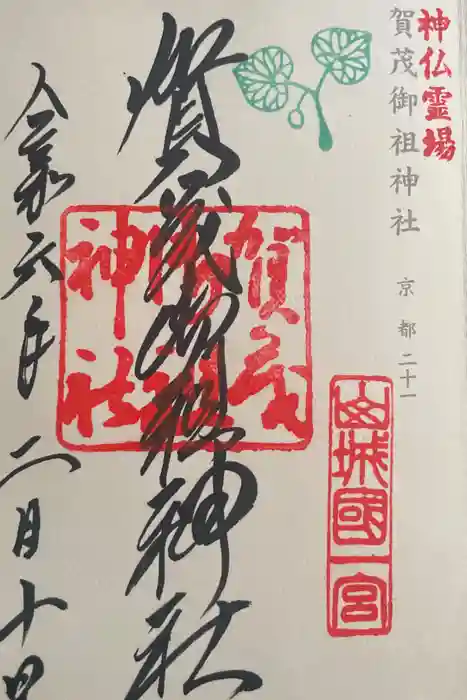 神仏霊場
賀茂御祖神社 京都二十一
山城國一宮
賀茂御祖神社
賀茂御祖神社
令和六年 二月十日